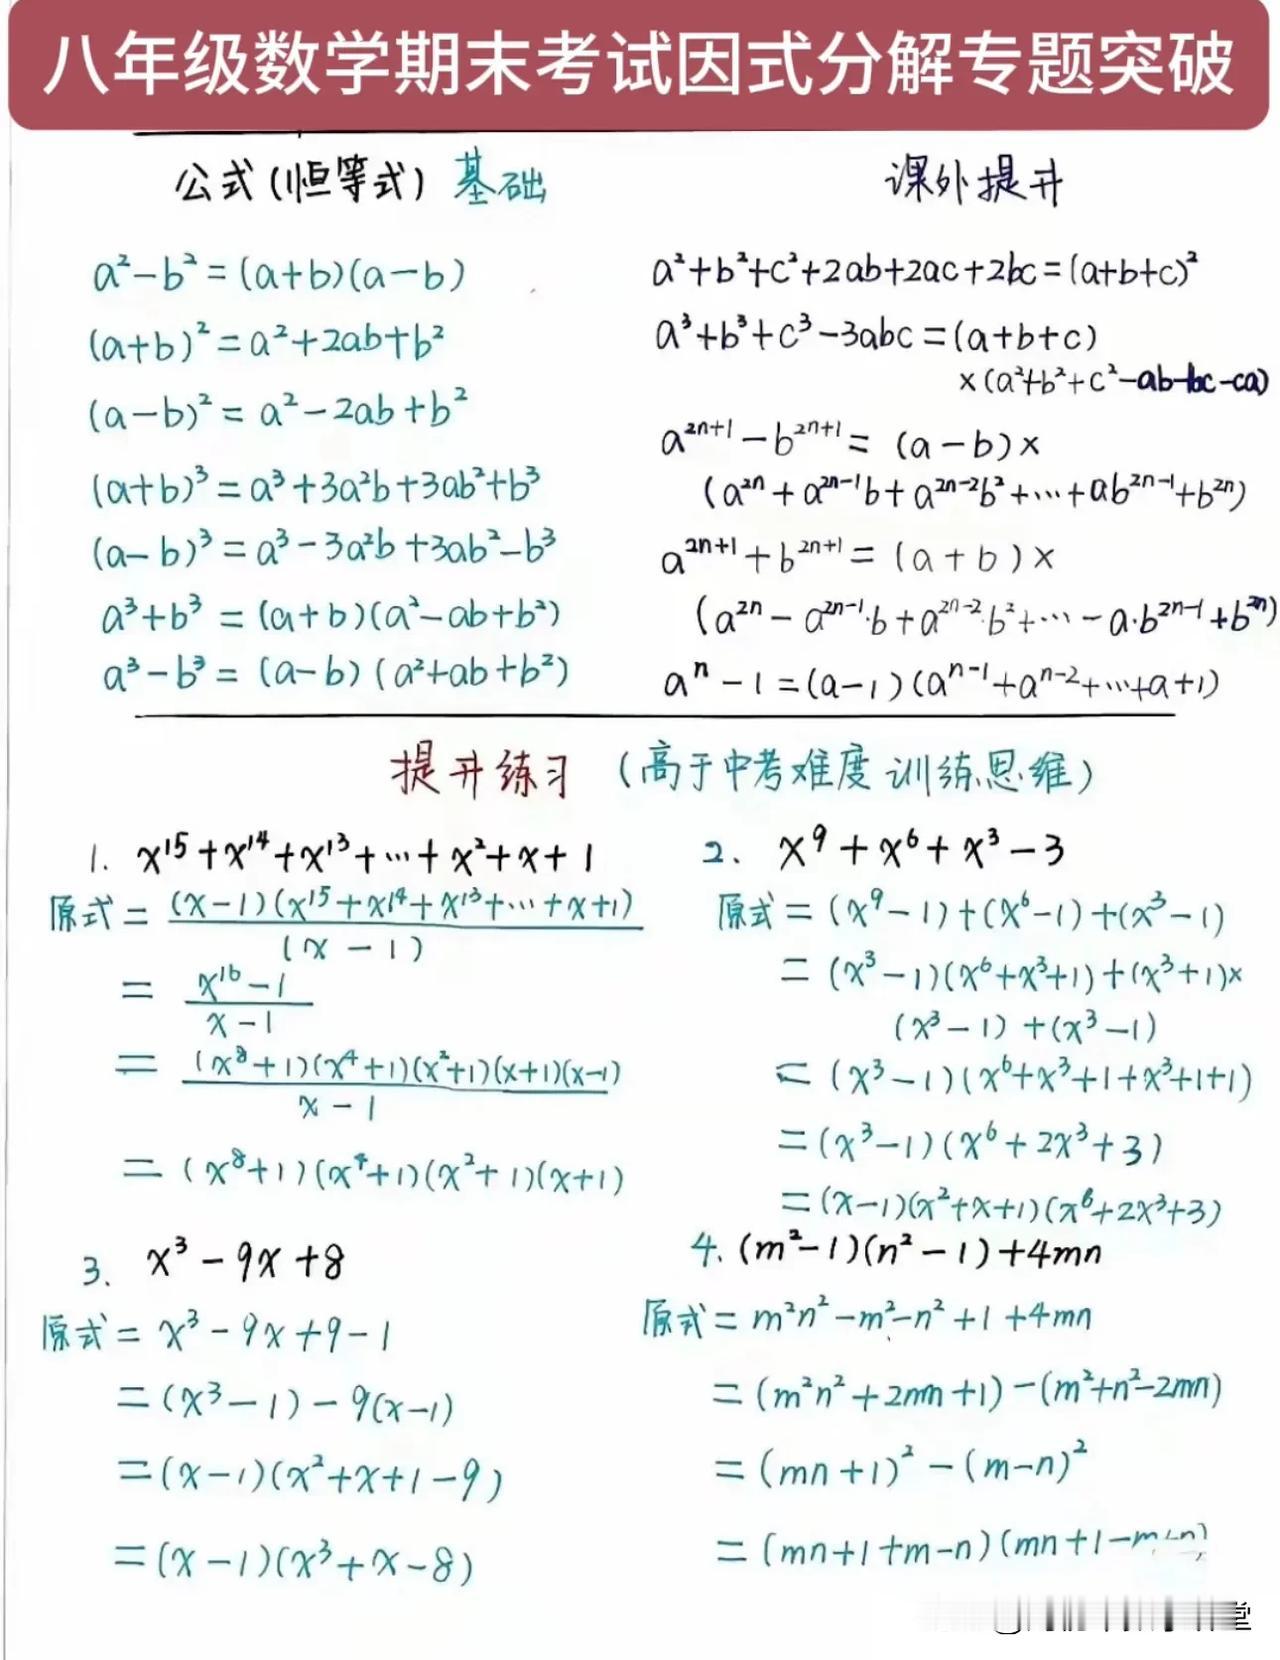 八年级数学期末考试因式分解专题突破
公式(恒等式) 基础
a²-b²=(a+b)(a-b)
(a+b)²=a²+2ab+b²
(a-b)²=a²-2ab+b²
(a+b)³=a³+3a²b+3ab²+b³
(a-b)³=a³-3a²b+3ab²-b³
a³+b³=(a+b)(a²-ab+b²)
a³-b³=(a-b)(a²+ab+b²)
课外提升
a²+b²+c²+2ab+2ac+2bc=(a+b+c)²
a³+b³+c³-3abc=(a+b+c)
×(a²+b²+c²-ab-bc-ca)
a²ⁿ⁺¹-b²ⁿ⁺¹=(a-b)×
(a²ⁿ+a²ⁿ⁻¹b+a²ⁿ⁻²b²+…+ab²ⁿ⁻¹+b²ⁿ)
a²ⁿ⁺¹+b²ⁿ⁺¹=(a+b)×
(a²ⁿ-a²ⁿ⁻¹·b+a²ⁿ⁻²·b²+…-a·b²ⁿ⁻¹+b²ⁿ)
aⁿ-1=(a-1)(aⁿ⁻¹+aⁿ⁻²+…+a+1)
提升练习 (高于中考难度 训练思维)
1. x¹⁵+x¹⁴+x¹³+…+x²+x+1
原式=(x-1)(x¹⁵+x¹⁴+x¹³+…+x+1)
(x-1)
=x¹⁶-1
x-1
=(x⁸+1)(x⁴+1)(x²+1)(x+1)(x-1)
x-1
=(x⁸+1)(x⁴+1)(x²+1)(x+1)
2. x⁹+x⁶+x³-3
原式=(x⁹-1)+(x⁶-1)+(x³-1)
=(x³-1)(x⁶+x³+1)+(x³+1)×
(x³-1)+(x³-1)
=(x³-1)(x⁶+x³+1+x³+1+1)
=(x³-1)(x⁶+2x³+3)
=(x-1)(x²+x+1)(x⁶+2x³+3)
3. x³-9x+8
原式=x³-9x+9-1
=(x³-1)-9(x-1)
=(x-1)(x²+x+1-9)
=(x-1)(x³+x-8)
4. (m²-1)(n²-1)+4mn
原式=m²n²-m²-n²+1+4mn
=(m²n²+2mn+1)-(m²+n²-2mn)
=(mn+1)²-(m-n)²
=(mn+1+m-n)(mn+1-m+n)
堂